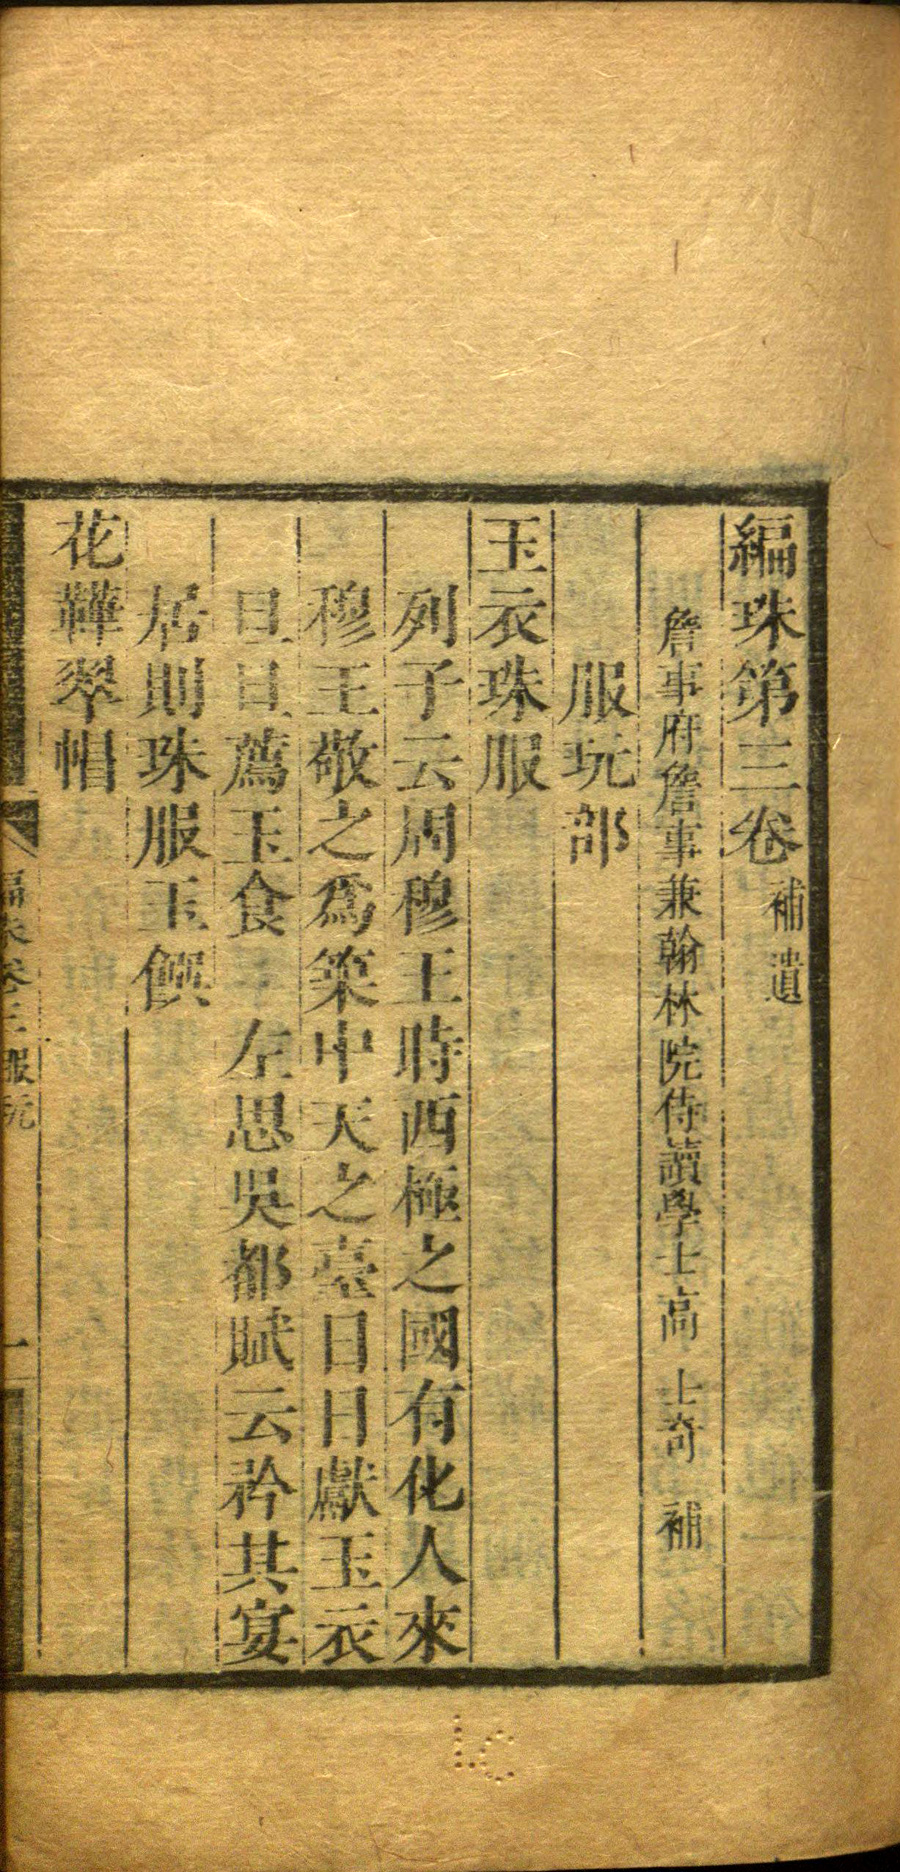 編珠第三卷補遺
詹事府詹事兼翰林院侍讀學士高 士奇 補
服玩部
玉衣珠服
列子云周穆王時西極之國有化人來
穆王敬之爲築中天之臺日日獻玉衣
旦旦薦玉食 左思吳都賦云矜其宴
居則珠服玉饌
花鞾翠帽
編珠卷三 服玩 一
LC